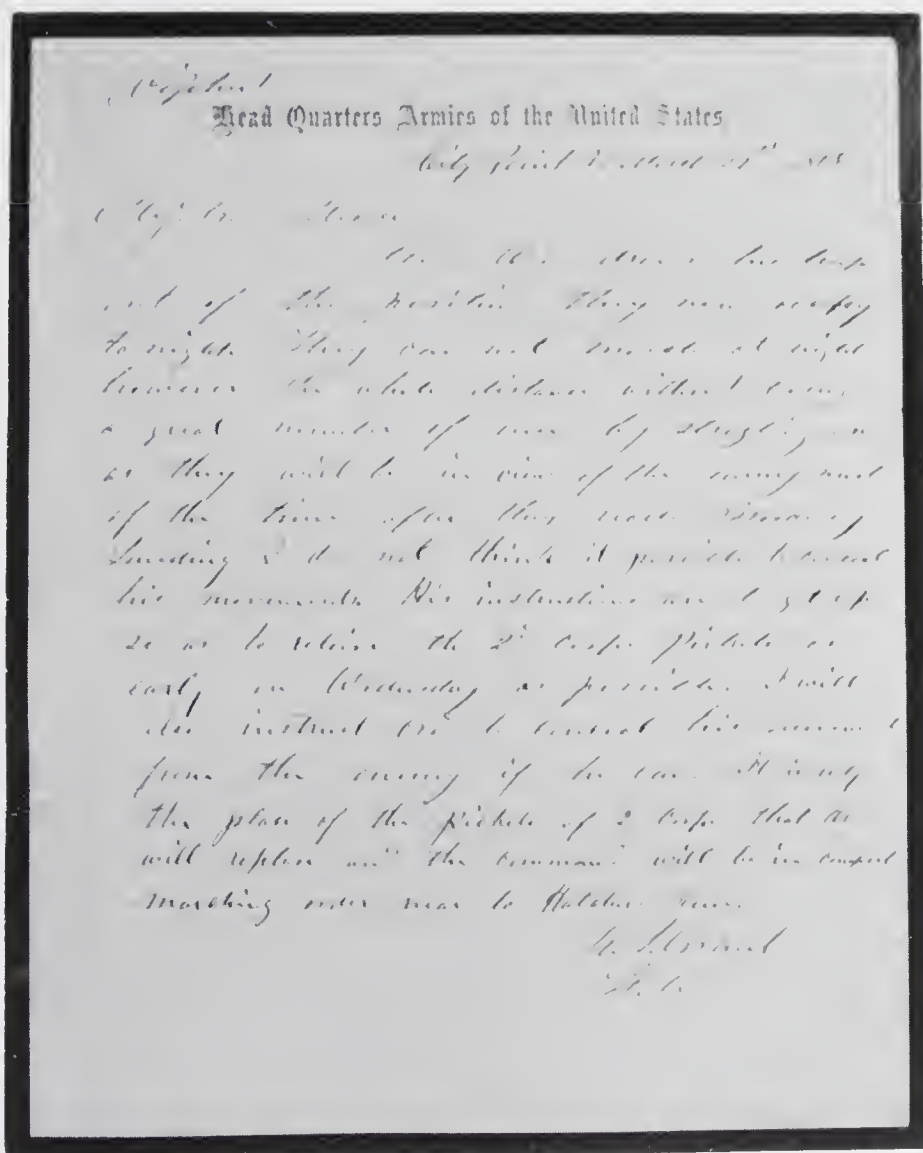 Head Quarters Armies of the United States
City Point
troops
out of the position they now occupy
to night. They can not march at night
however the whole distance without
a great number of men by straggling
as they will be in view of the enemy
of the time after they
Landing I do not think it possible to conceal
his movements. His instructions are to get up
so as to relieve the 2d Corps Pickets as
early on Wednesday as possible. I will
also instruct Ord to conceal his
from the enemy if he can. It is only
the place of the Pickets of 2 Corps that
will replace and the command will be in compact
marching order near to Hatchers run.
U. S. Grant